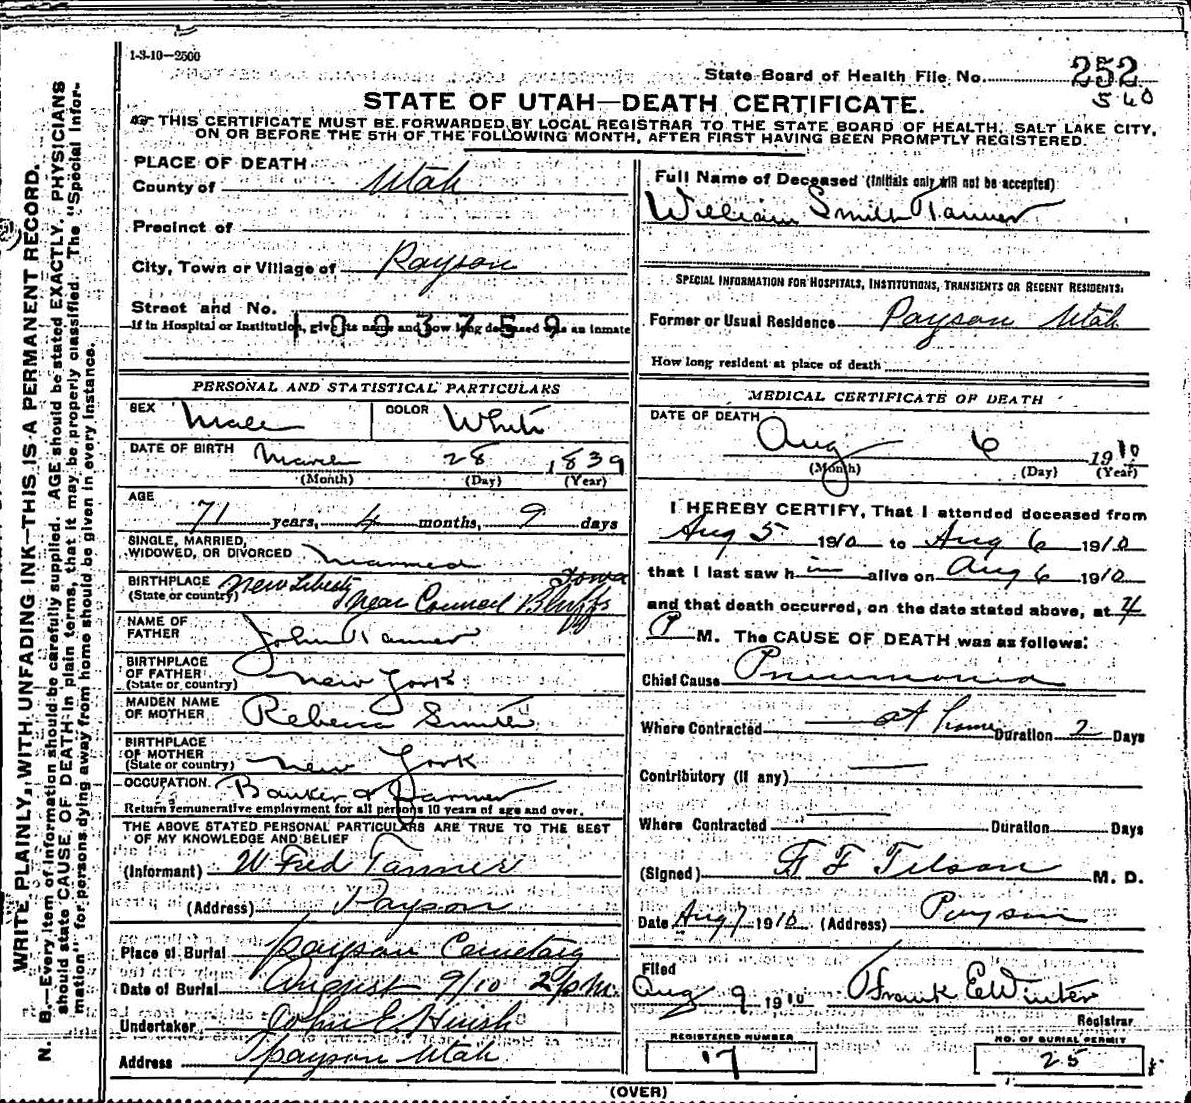 1-3-10—2500
State Board of Health File No. 252
540
STATE OF UTAH—DEATH CERTIFICATE.
THIS CERTIFICATE MUST BE FORWARDED BY LOCAL REGISTRAR TO THE STATE BOARD OF HEALTH, SALT LAKE CITY,
ON OR BEFORE THE 5TH OF THE FOLLOWING MONTH, AFTER FIRST HAVING BEEN PROMPTLY REGISTERED.
N. B.—Every item of information should be carefully supplied. AGE should be stated EXACTLY. PHYSICIANS
should state CAUSE OF DEATH in plain terms, that it may be properly classified. The "Special Infor-
mation" for persons dying away from home should be given in every instance.
WRITE PLAINLY, WITH UNFADING INK—THIS IS A PERMANENT RECORD.
PLACE OF DEATH
County of Utah
Precinct of
City, Town or Village of Payson
Street and No.
If in Hospital or Institution, give its name and how long deceased was an inmate
1003759
PERSONAL AND STATISTICAL PARTICULARS
SEX Male COLOR White
DATE OF BIRTH March 28 1839
(Month) (Day) (Year)
AGE
71 years, 4 months, 9 days
SINGLE, MARRIED,
WIDOWED, OR DIVORCED Married
BIRTHPLACE
(State or country) New Liberty near Council Bluffs Iowa
NAME OF
FATHER John Tanner
BIRTHPLACE
OF FATHER
(State or country) New York
MAIDEN NAME
OF MOTHER Rebeca Smith
BIRTHPLACE
OF MOTHER
(State or country) New York
OCCUPATION Banker & Farmer
Return remunerative employment for all persons 10 years of age and over.
THE ABOVE STATED PERSONAL PARTICULARS ARE TRUE TO THE BEST
OF MY KNOWLEDGE AND BELIEF
(Informant) W Fred Tanner
(Address) Payson
Place of Burial Payson Cemetery
Date of Burial August 9/10 2 p.m.
Undertaker John E. Huish
Address Payson Utah
Full Name of Deceased (Initials only will not be accepted)
William Smith Tanner
SPECIAL INFORMATION FOR HOSPITALS, INSTITUTIONS, TRANSIENTS OR RECENT RESIDENTS.
Former or Usual Residence Payson Utah
How long resident at place of death
MEDICAL CERTIFICATE OF DEATH
DATE OF DEATH
Aug 6 1910
(Month) (Day) (Year)
I HEREBY CERTIFY, That I attended deceased from
Aug 5 1910 to Aug 6 1910
that I last saw him alive on Aug 6 1910
and that death occurred, on the date stated above, at 4
P M. The CAUSE OF DEATH was as follows:
Chief Cause Pneumonia
Where Contracted at home Duration 2 Days
Contributory (if any)
Where Contracted Duration Days
(Signed) F F Tilson M. D.
Date Aug 7 1910 (Address) Payson
Filed
Aug 9 1910 Frank E Winter
Registrar
REGISTERED NUMBER
17
NO. OF BURIAL PERMIT
25
(OVER)